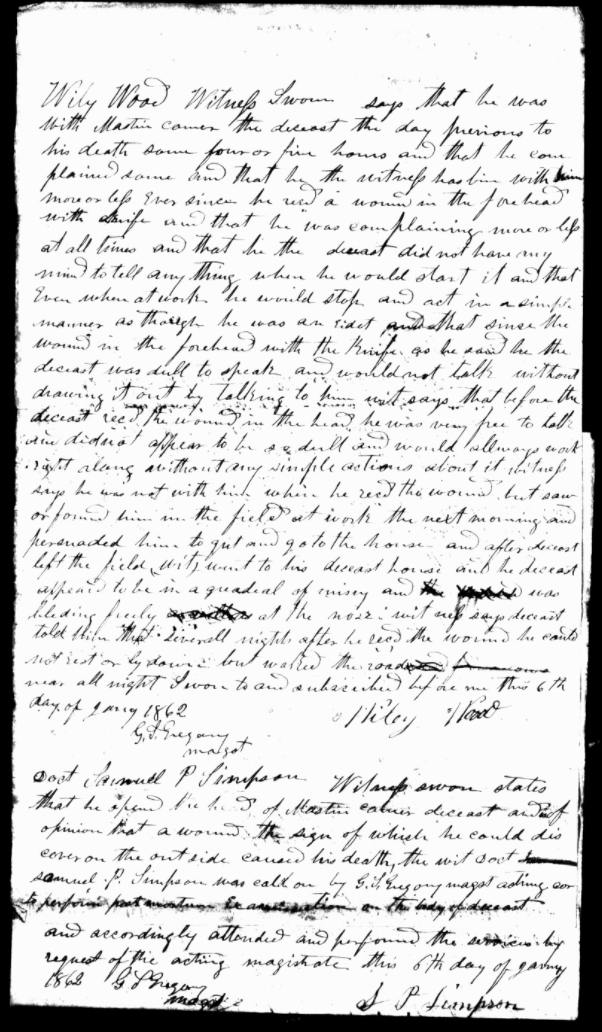 Wily Wood Witness Sworn says that he was
with Mastin comer the deceast the day previous to
his death some four or five hours and that he com
plained some and that he the witness has bin with him
more or less Ever since he recd a wound in the forehead
with knife and that he was complaining more or less
at all times and that he the deceast did not have my
mind to tell any thing when he would start it and that
Even when at work he would stop and act in a simple
manner as though he was an Edet and that since the
wound in the forehead with the Knife as he said he the
deceast was dull to speak and would not talk without
drawing it out by talking to him wit says that before the
deceast recd the wound in the head he was very free to talk
and didnot appear to be so dull and would allways work
right along without any simple actions about it witness
says he was not with him when he recd the wound but saw
or found him in the field at work the next morning and
persuaded him to quit and go to the house and after deceast
left the field wit went to his deceast house and he deceast
appeard to be in a quadeal of misry and was
bleding freely at the nose witness says deceast
told him that severall nights after he recd the wound he could
not rest or ly down but walked the road
near all night Sworn to and subscribed before me this 6th
day of Jany 1862 Wiley Wood
G. S. Gregory
magst
Doct Samuel P Simpson Witness sworn states
that he opend the head of Mastin comer deceast and of
opinion that a wound the sign of which he could dis
cover on the out side caused his death, the wit Doct
Samuel P. Simpson was calld on by G. S. Gregory magst acting cor
to perform post mortum Examination on the body of deceast
and accordingly attended and perfound the servicies by
request of the acting magistrate this 6th day of Janry
1862 G S Gregory
magst S P Simpson